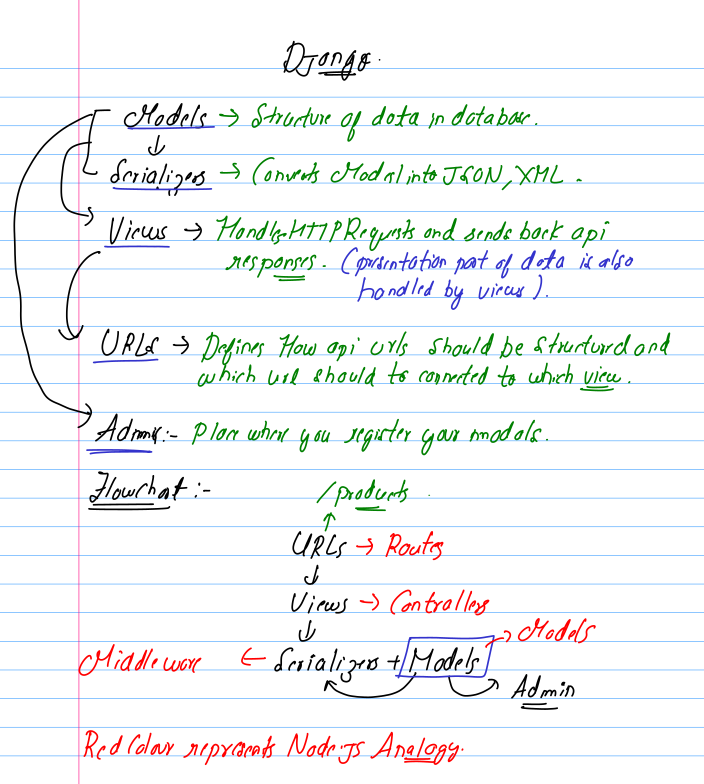 Django.
Models → Structure of data in database.
↓
Serializers → Converts Model into JSON, XML.
Views → Handles HTTP Requests and sends back api
responses. (presentation part of data is also
handled by views).
URLs → Defines How api urls should be structured and
which url should to connected to which view.
Admin:- Place where you register your models.
Flowchat:-
/products
↑
URLs → Routes
↓
Views → Controllers
↓
→ Models
Middleware ← Serializers + Models
Admin
Red Colour represents Node.js Analogy.